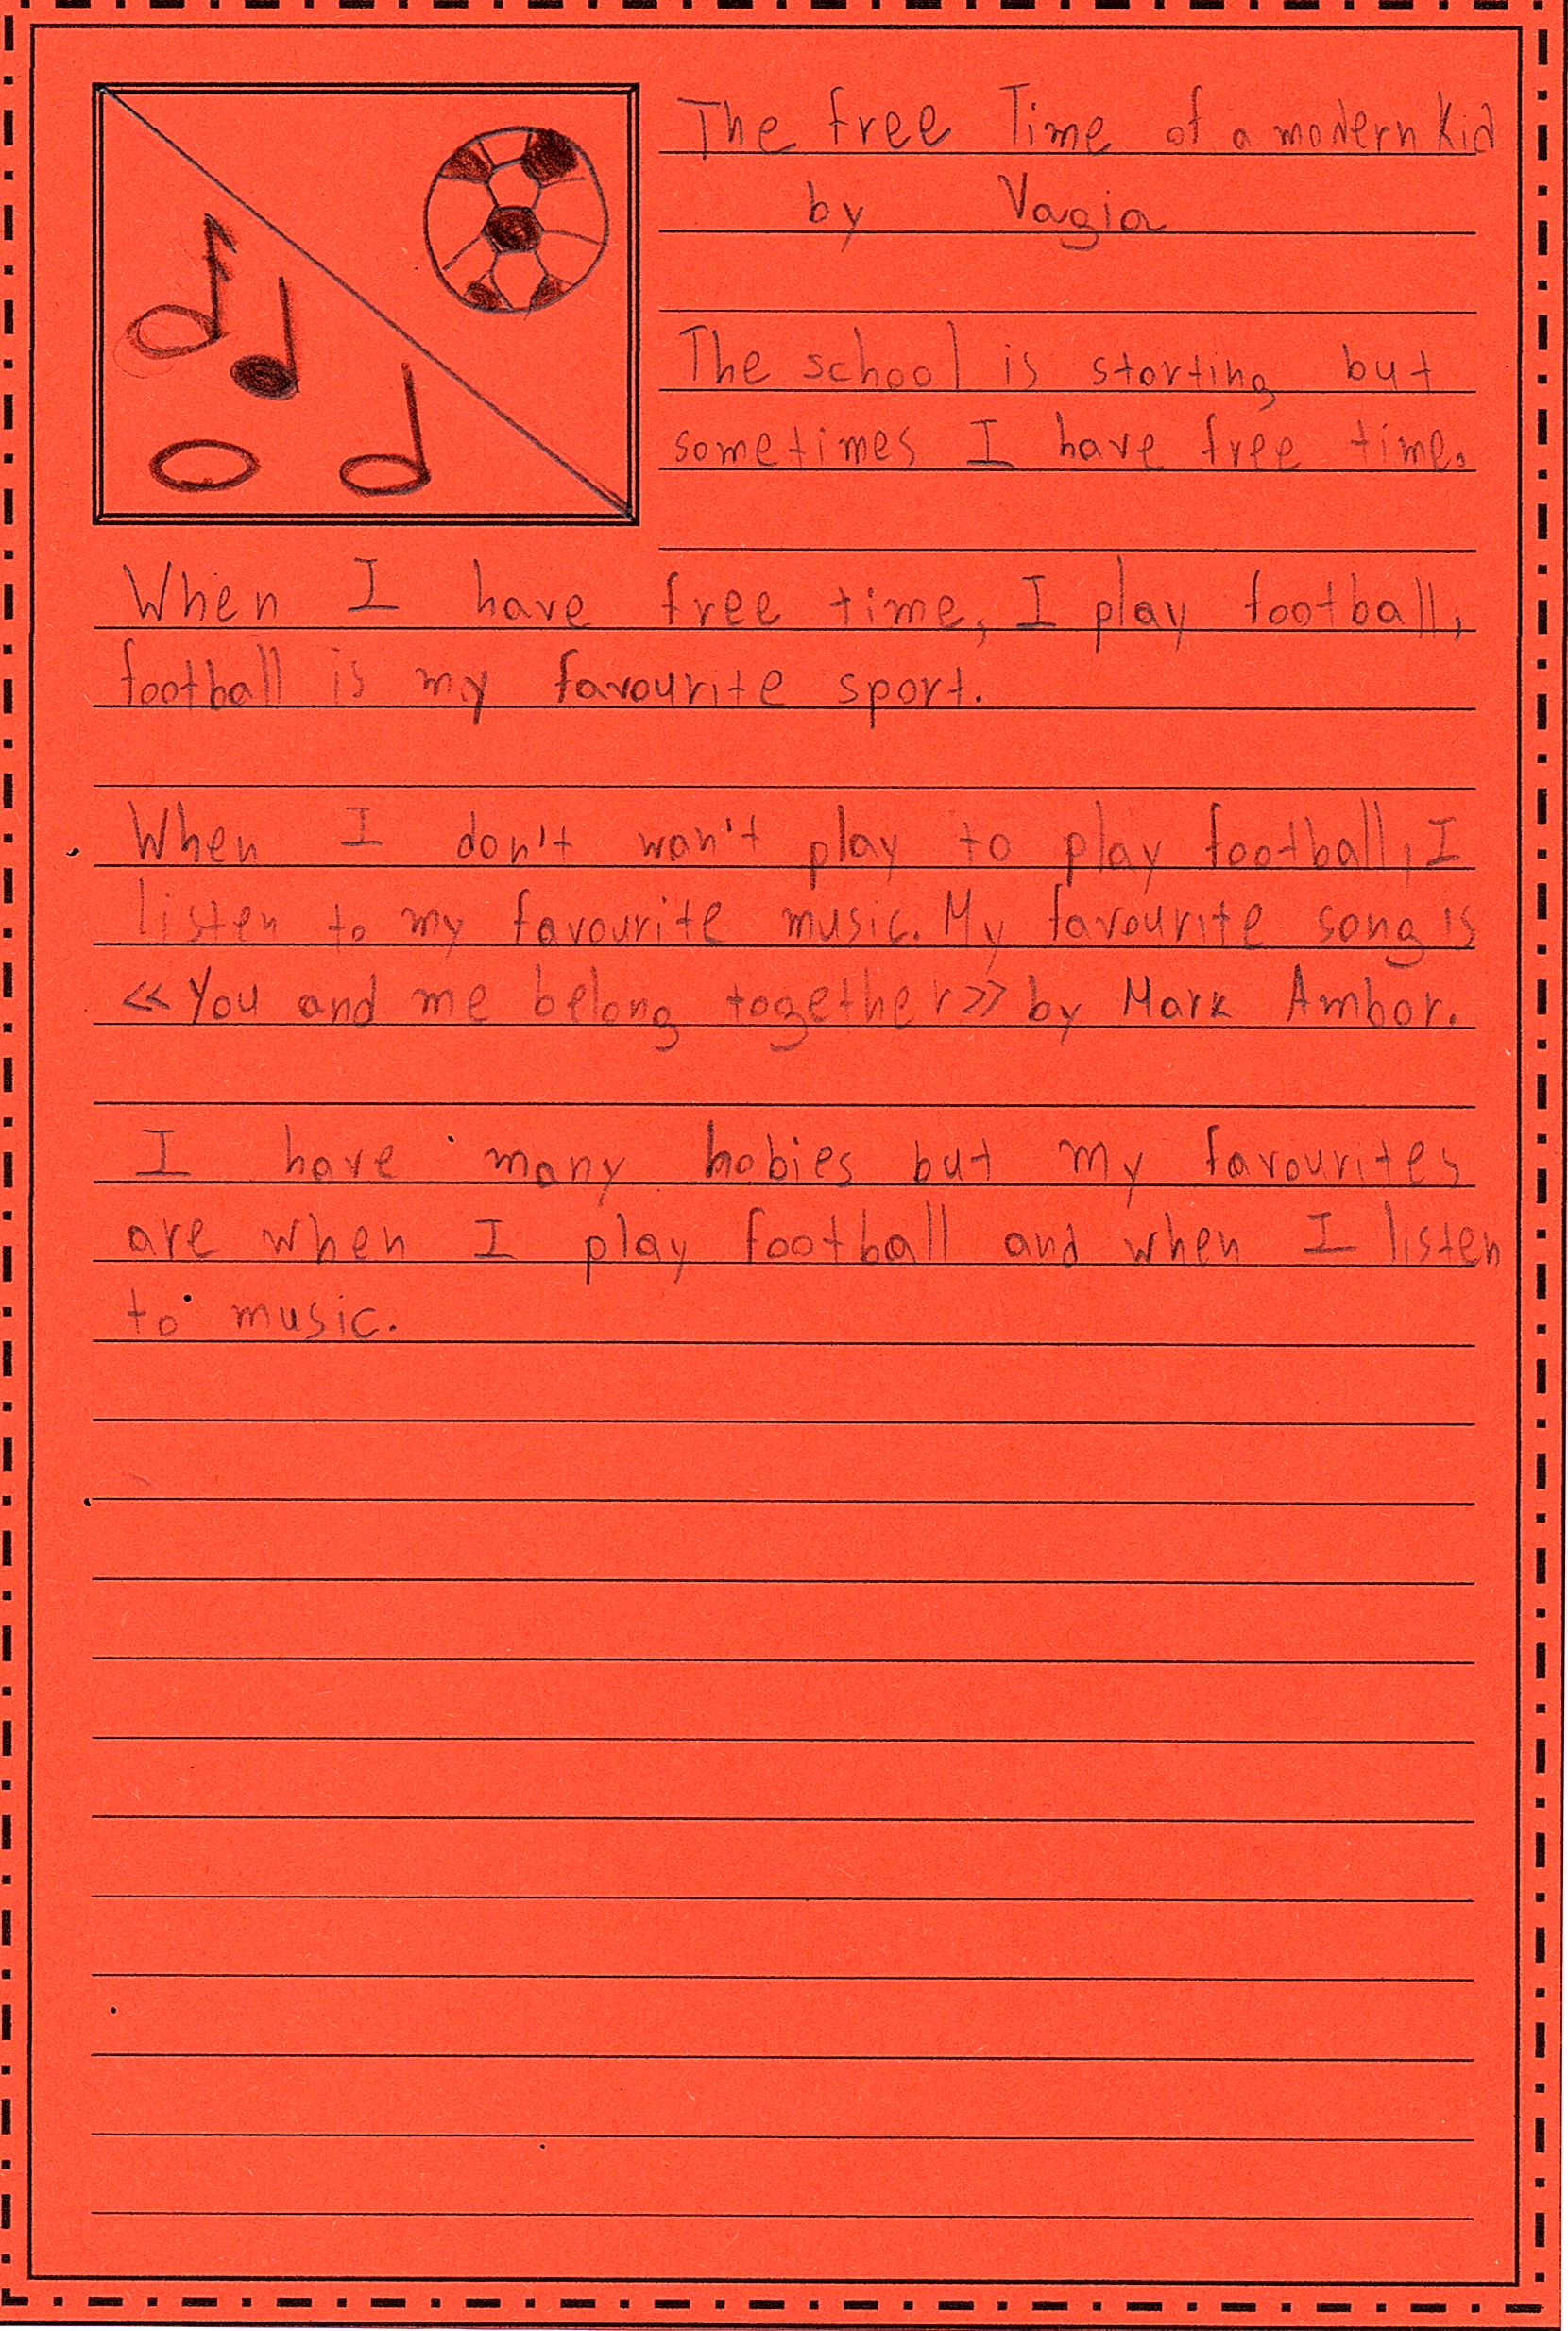 The free Time of a modern kid
by Vagia
The school is starting but
sometimes I have free time.
When I have free time, I play football,
football is my favourite sport.
When I don't won't play to play football, I
listen to my favourite music. My favourite song is
«You and me belong together» by Mark Ambor.
I have many hobies but my favourites
are when I play football and when I listen
to music.